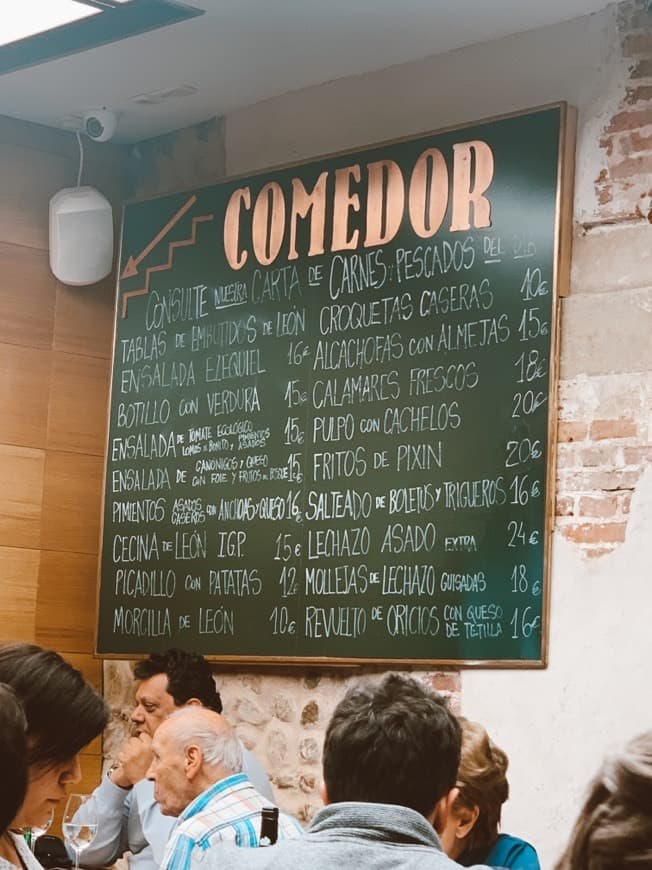 COMEDOR
CONSULTE NUESTRA CARTA DE CARNES Y PESCADOS DEL DIA
TABLAS DE EMBUTIDOS DE LEÓN
ENSALADA EZEQUIEL 16€
BOTILLO CON VERDURA 15€
ENSALADA DE TOMATE ECOLÓGICO
LOMOS DE BONITO Y PIMIENTOS ASADOS 15€
ENSALADA DE CANÓNIGOS Y QUESO
CON FOIE Y FRUTOS DEL BOSQUE 15€
PIMIENTOS ASADOS CASEROS CON ANCHOAS Y QUESO 16€
CECINA DE LEÓN IGP. 15€
PICADILLO CON PATATAS 12€
MORCILLA DE LEÓN 10€
CROQUETAS CASERAS 10€
ALCACHOFAS CON ALMEJAS 15€
CALAMARES FRESCOS 18€
PULPO CON CACHELOS 20€
FRITOS DE PIXIN 20€
SALTEADO DE BOLETUS Y TRIGUEROS 16€
LECHAZO ASADO EXTRA 24€
MOLLEJAS DE LECHAZO GUISADAS 18€
REVUELTO DE ORICIOS CON QUESO
DE TETILLA 16€